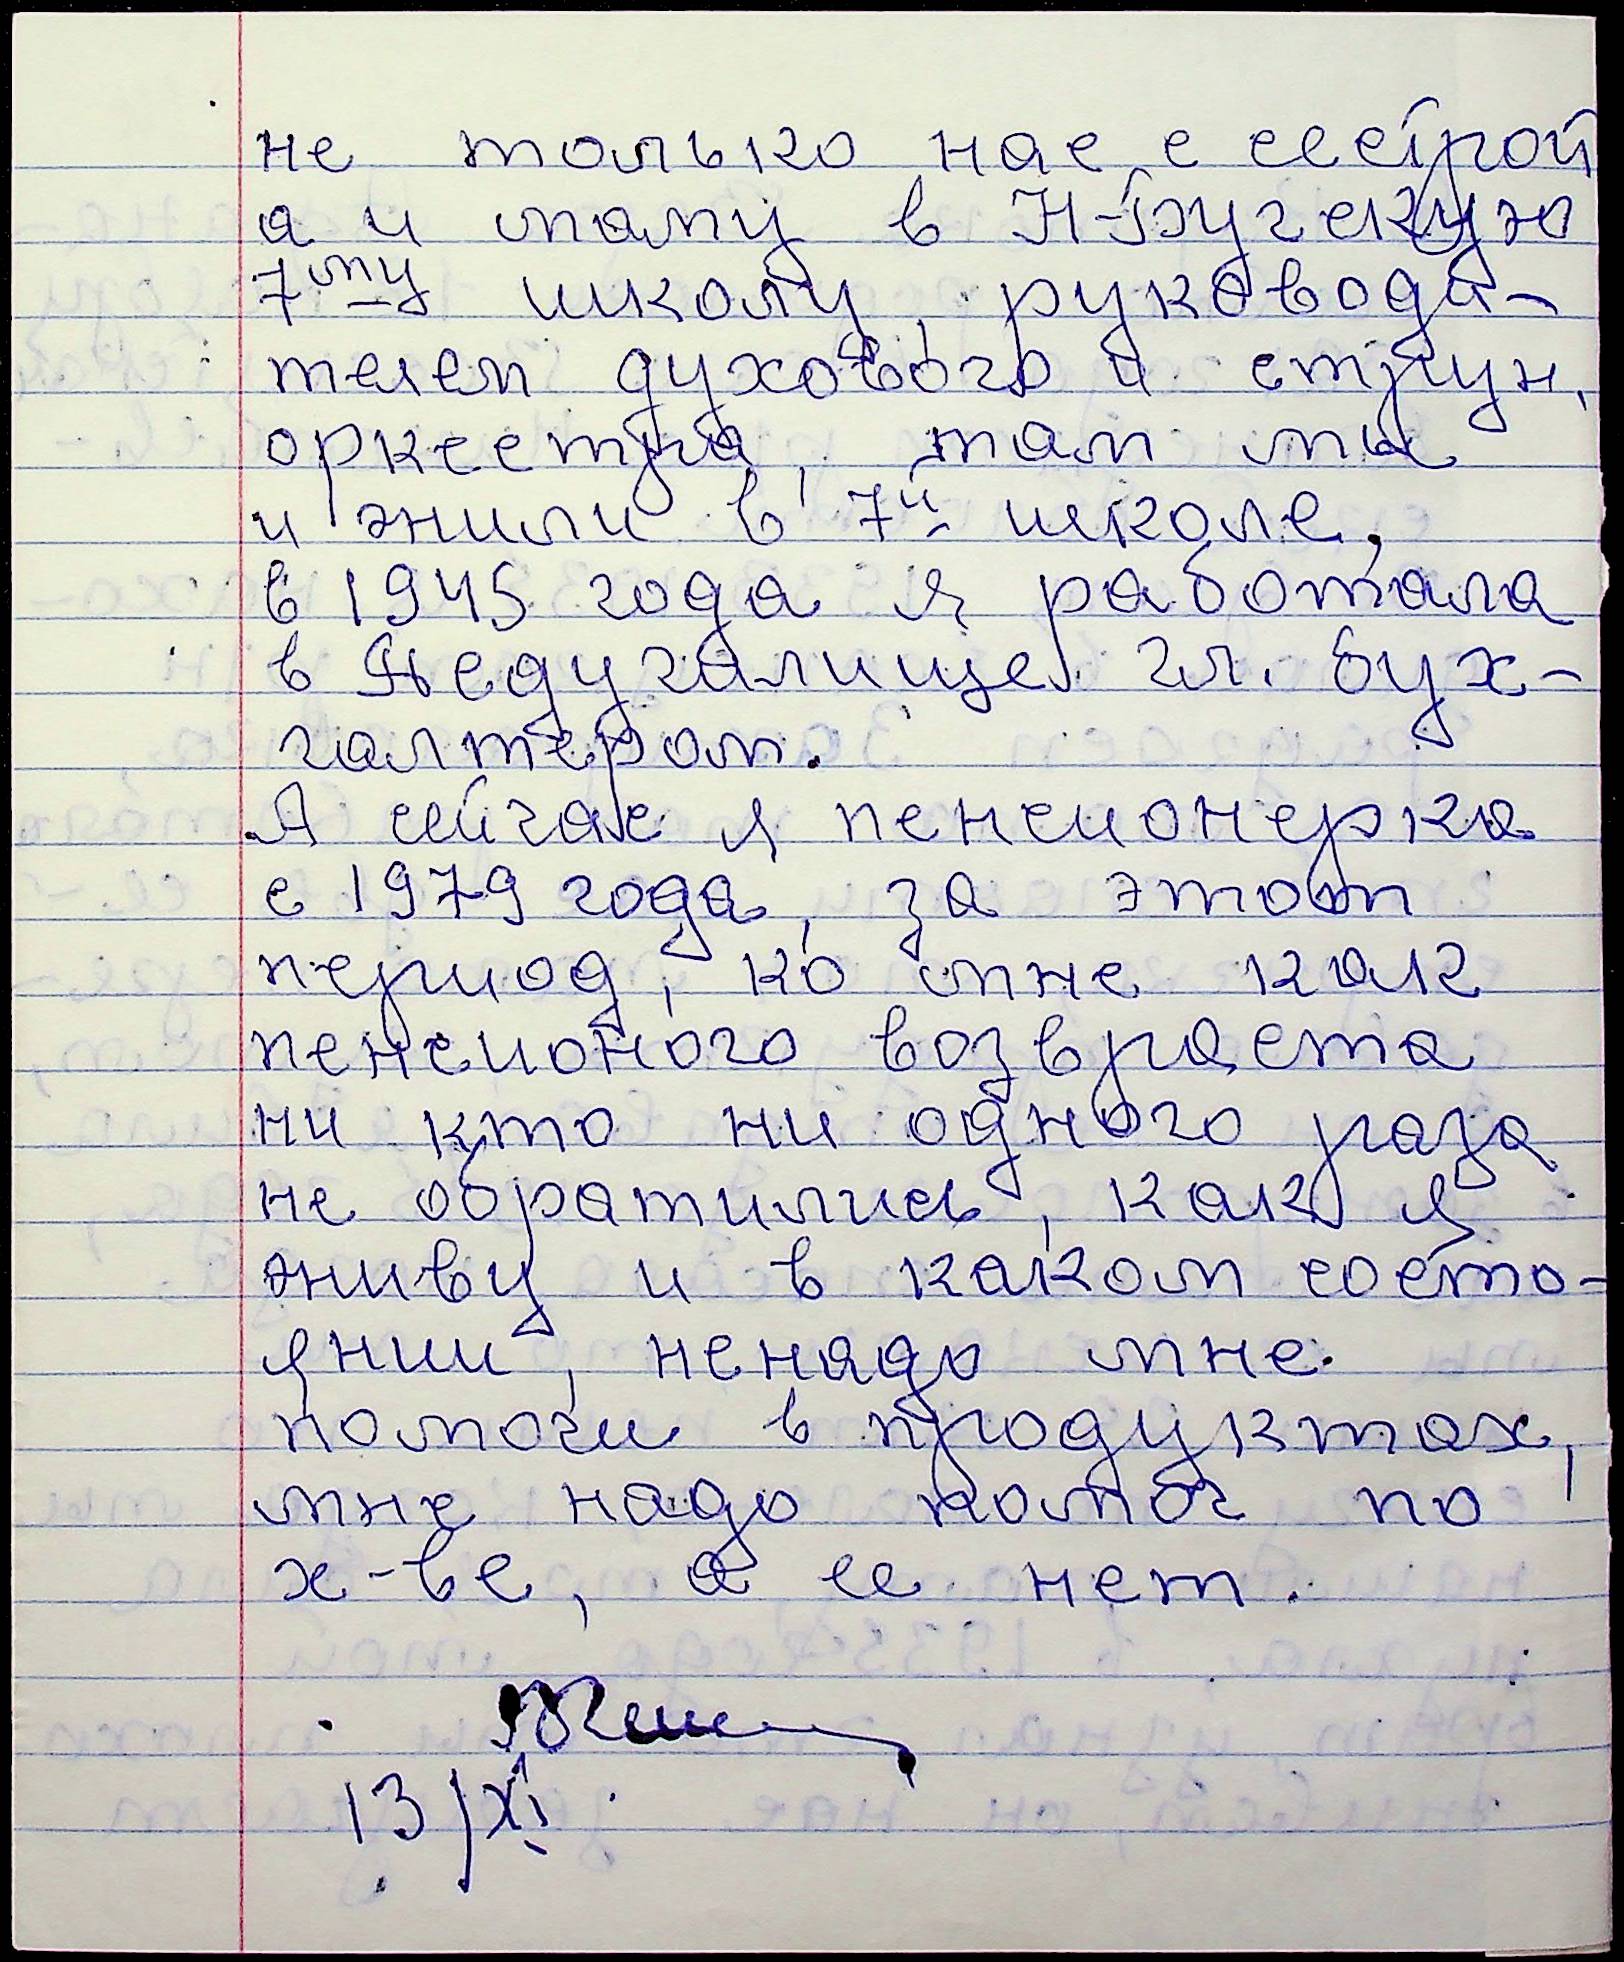 не только нас с сестрой
а и маму в Н-Бугскую
7му школу, руководи-
телем духового и струн.
оркестра, там мы
и жили в 7й школе.
в 1945 года я работала
в Педучалище гл. бух-
галтером.
А сейчас я пенсионерка
с 1979 года, за этот
период, ко мне как
пенсионого возвраста
ни кто ни одного раза
не обратились, как я
живу и в каком состо-
янии, ненадо мне
помочи в продуктах,
мне надо помоч по
х-ве, а ее нет.
13/XI